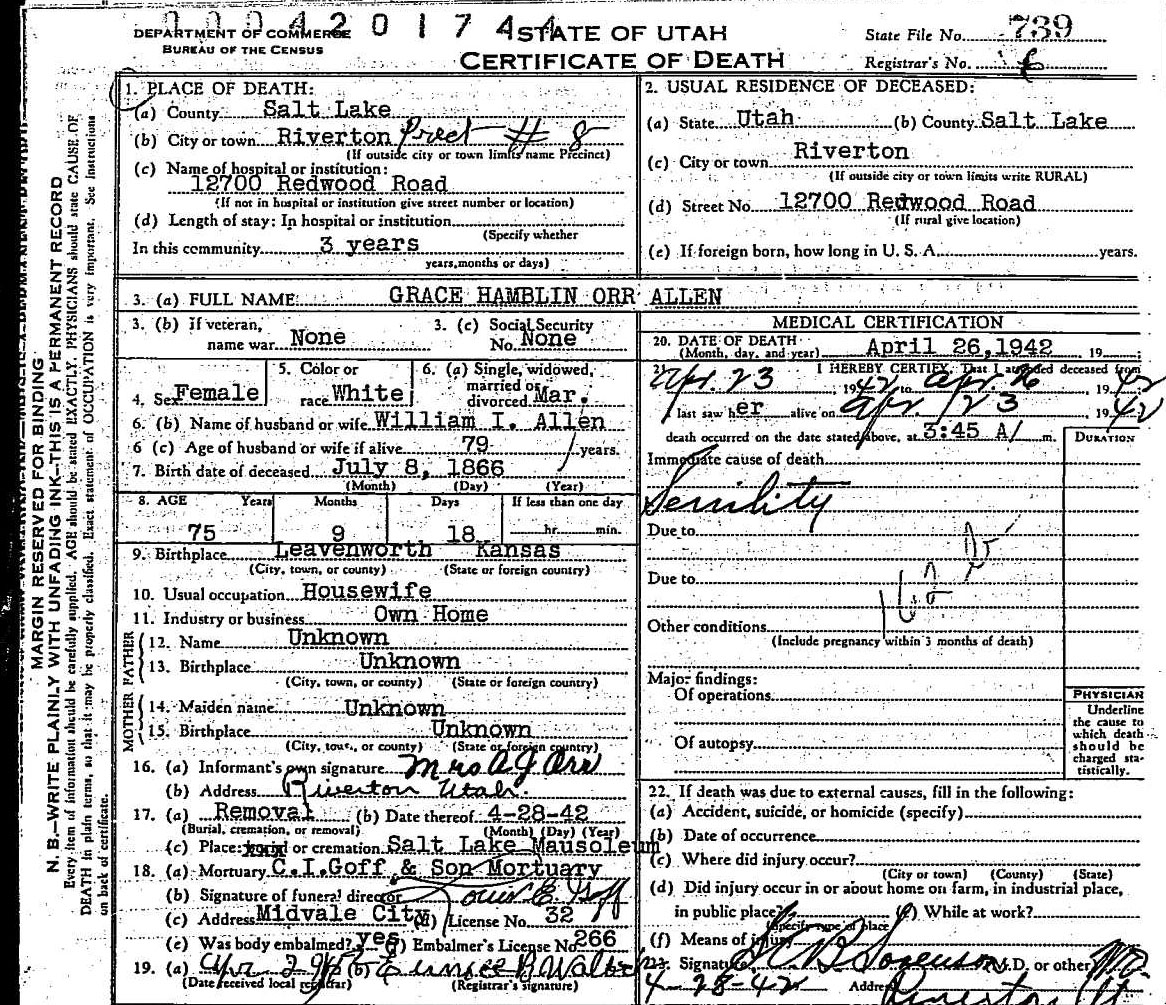 0 0 0 4 2 0 1 7 4 4
DEPARTMENT OF COMMERCE
BUREAU OF THE CENSUS
STATE OF UTAH
CERTIFICATE OF DEATH
State File No. 739
Registrar's No.
N. B.—WRITE PLAINLY WITH UNFADING INK—THIS IS A PERMANENT RECORD
MARGIN RESERVED FOR BINDING
Every item of information should be carefully supplied. AGE should be stated EXACTLY. PHYSICIANS should state CAUSE OF
DEATH in plain terms, so that it may be properly classified. Exact statement of OCCUPATION is very important. See Instructions
on back of certificate.
1. PLACE OF DEATH:
(a) County Salt Lake
(b) City or town Riverton Prect # 8
(If outside city or town limits name Precinct)
(c) Name of hospital or institution:
12700 Redwood Road
(If not in hospital or institution give street number or location)
(d) Length of stay: In hospital or institution
(Specify whether
In this community 3 years
years, months or days)
2. USUAL RESIDENCE OF DECEASED:
(a) State Utah (b) County Salt Lake
(c) City or town Riverton
(If outside city or town limits write RURAL)
(d) Street No. 12700 Redwood Road
(If rural give location)
(e) If foreign born, how long in U. S. A. years.
3. (a) FULL NAME: GRACE HAMBLIN ORR ALLEN
3. (b) If veteran, name war None
3. (c) Social Security No. None
4. Sex Female
5. Color or race White
6. (a) Single, widowed, married or divorced Mar.
6. (b) Name of husband or wife William I. Allen
6 (c) Age of husband or wife if alive 79 years.
7. Birth date of deceased July 8, 1866
(Month) (Day) (Year)
8. AGE Years Months Days If less than one day
75 9 18 hr. min.
9. Birthplace Leavenworth Kansas
(City, town, or county) (State or foreign country)
10. Usual occupation Housewife
11. Industry or business Own Home
FATHER
12. Name Unknown
13. Birthplace Unknown
(City, town, or county) (State or foreign country)
MOTHER
14. Maiden name Unknown
15. Birthplace Unknown
(City, town, or county) (State or foreign country)
16. (a) Informant's own signature Mrs A J Orr
(b) Address Riverton Utah.
17. (a) Removal (b) Date thereof 4-28-42
(Burial, cremation, or removal) (Month) (Day) (Year)
(c) Place: burial or cremation Salt Lake Mausoleum
18. (a) Mortuary C.I.Goff & Son Mortuary
(b) Signature of funeral director Louis E. Goff
(c) Address Midvale City (d) License No. 32
(e) Was body embalmed? yes (f) Embalmer's License No 266
19. (a) Apr 29 (b)
(Date received local registrar) (Registrar's signature)
MEDICAL CERTIFICATION
20. DATE OF DEATH April 26, 1942 19
(Month, day, and year)
21. I HEREBY CERTIFY, That I attended deceased from
Apr. 23 1942 to Apr. 26, 1942
I last saw her alive on Apr. 23 1942
death occurred on the date stated above, at 3:45 A/ m.
DURATION
Immediate cause of death
Senility
Due to
Due to
Other conditions
(Include pregnancy within 3 months of death)
Major findings:
Of operations
Of autopsy
PHYSICIAN
Underline
the cause to
which death
should be
charged sta-
tistically.
22. If death was due to external causes, fill in the following:
(a) Accident, suicide, or homicide (specify)
(b) Date of occurrence
(c) Where did injury occur?
(City or town) (County) (State)
(d) Did injury occur in or about home on farm, in industrial place,
in public place? (e) While at work?
(Specify type of place)
(f) Means of injury
23. Signature Sorenson M.D. or other MD
4-28-42 Address Riverton Ut